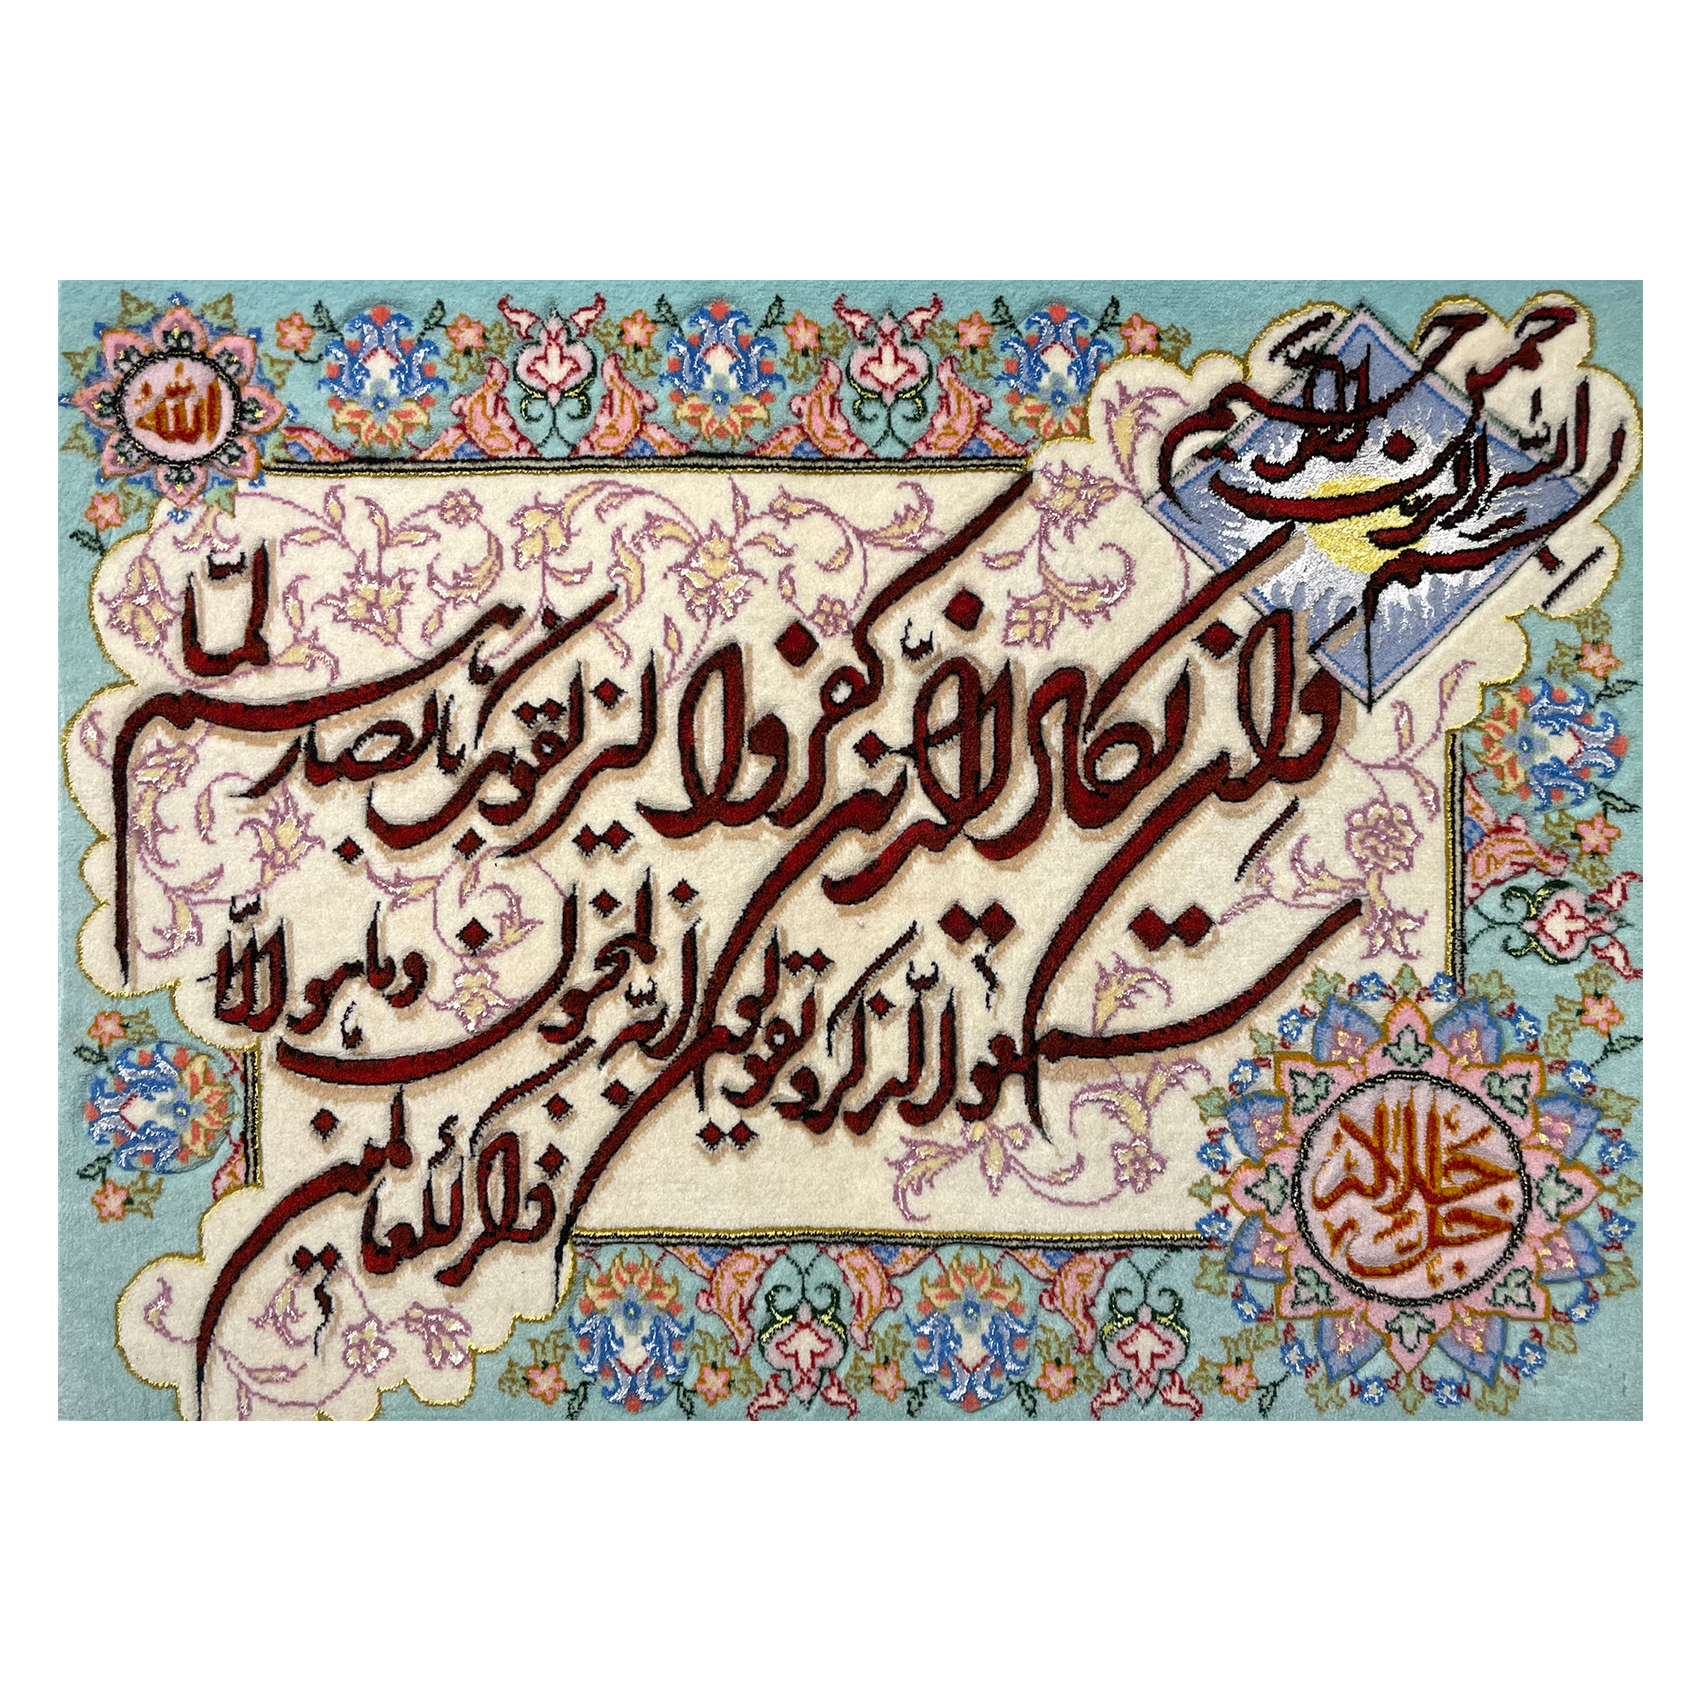 بسم الله الرحمن الرحيم
الله
وان يكاد الذين كفروا ليزلقونك بابصارهم لمّا
سمعوا الذكر و يقولون انه لمجنون وما هو الّا
ذكر للعالمين
جل جلاله